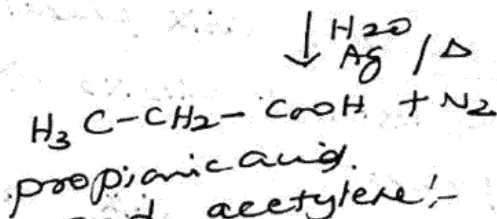 ↓ H2O
Ag / Δ
H3C-CH2-COOH + N2
propionic acid.
acetylene:-